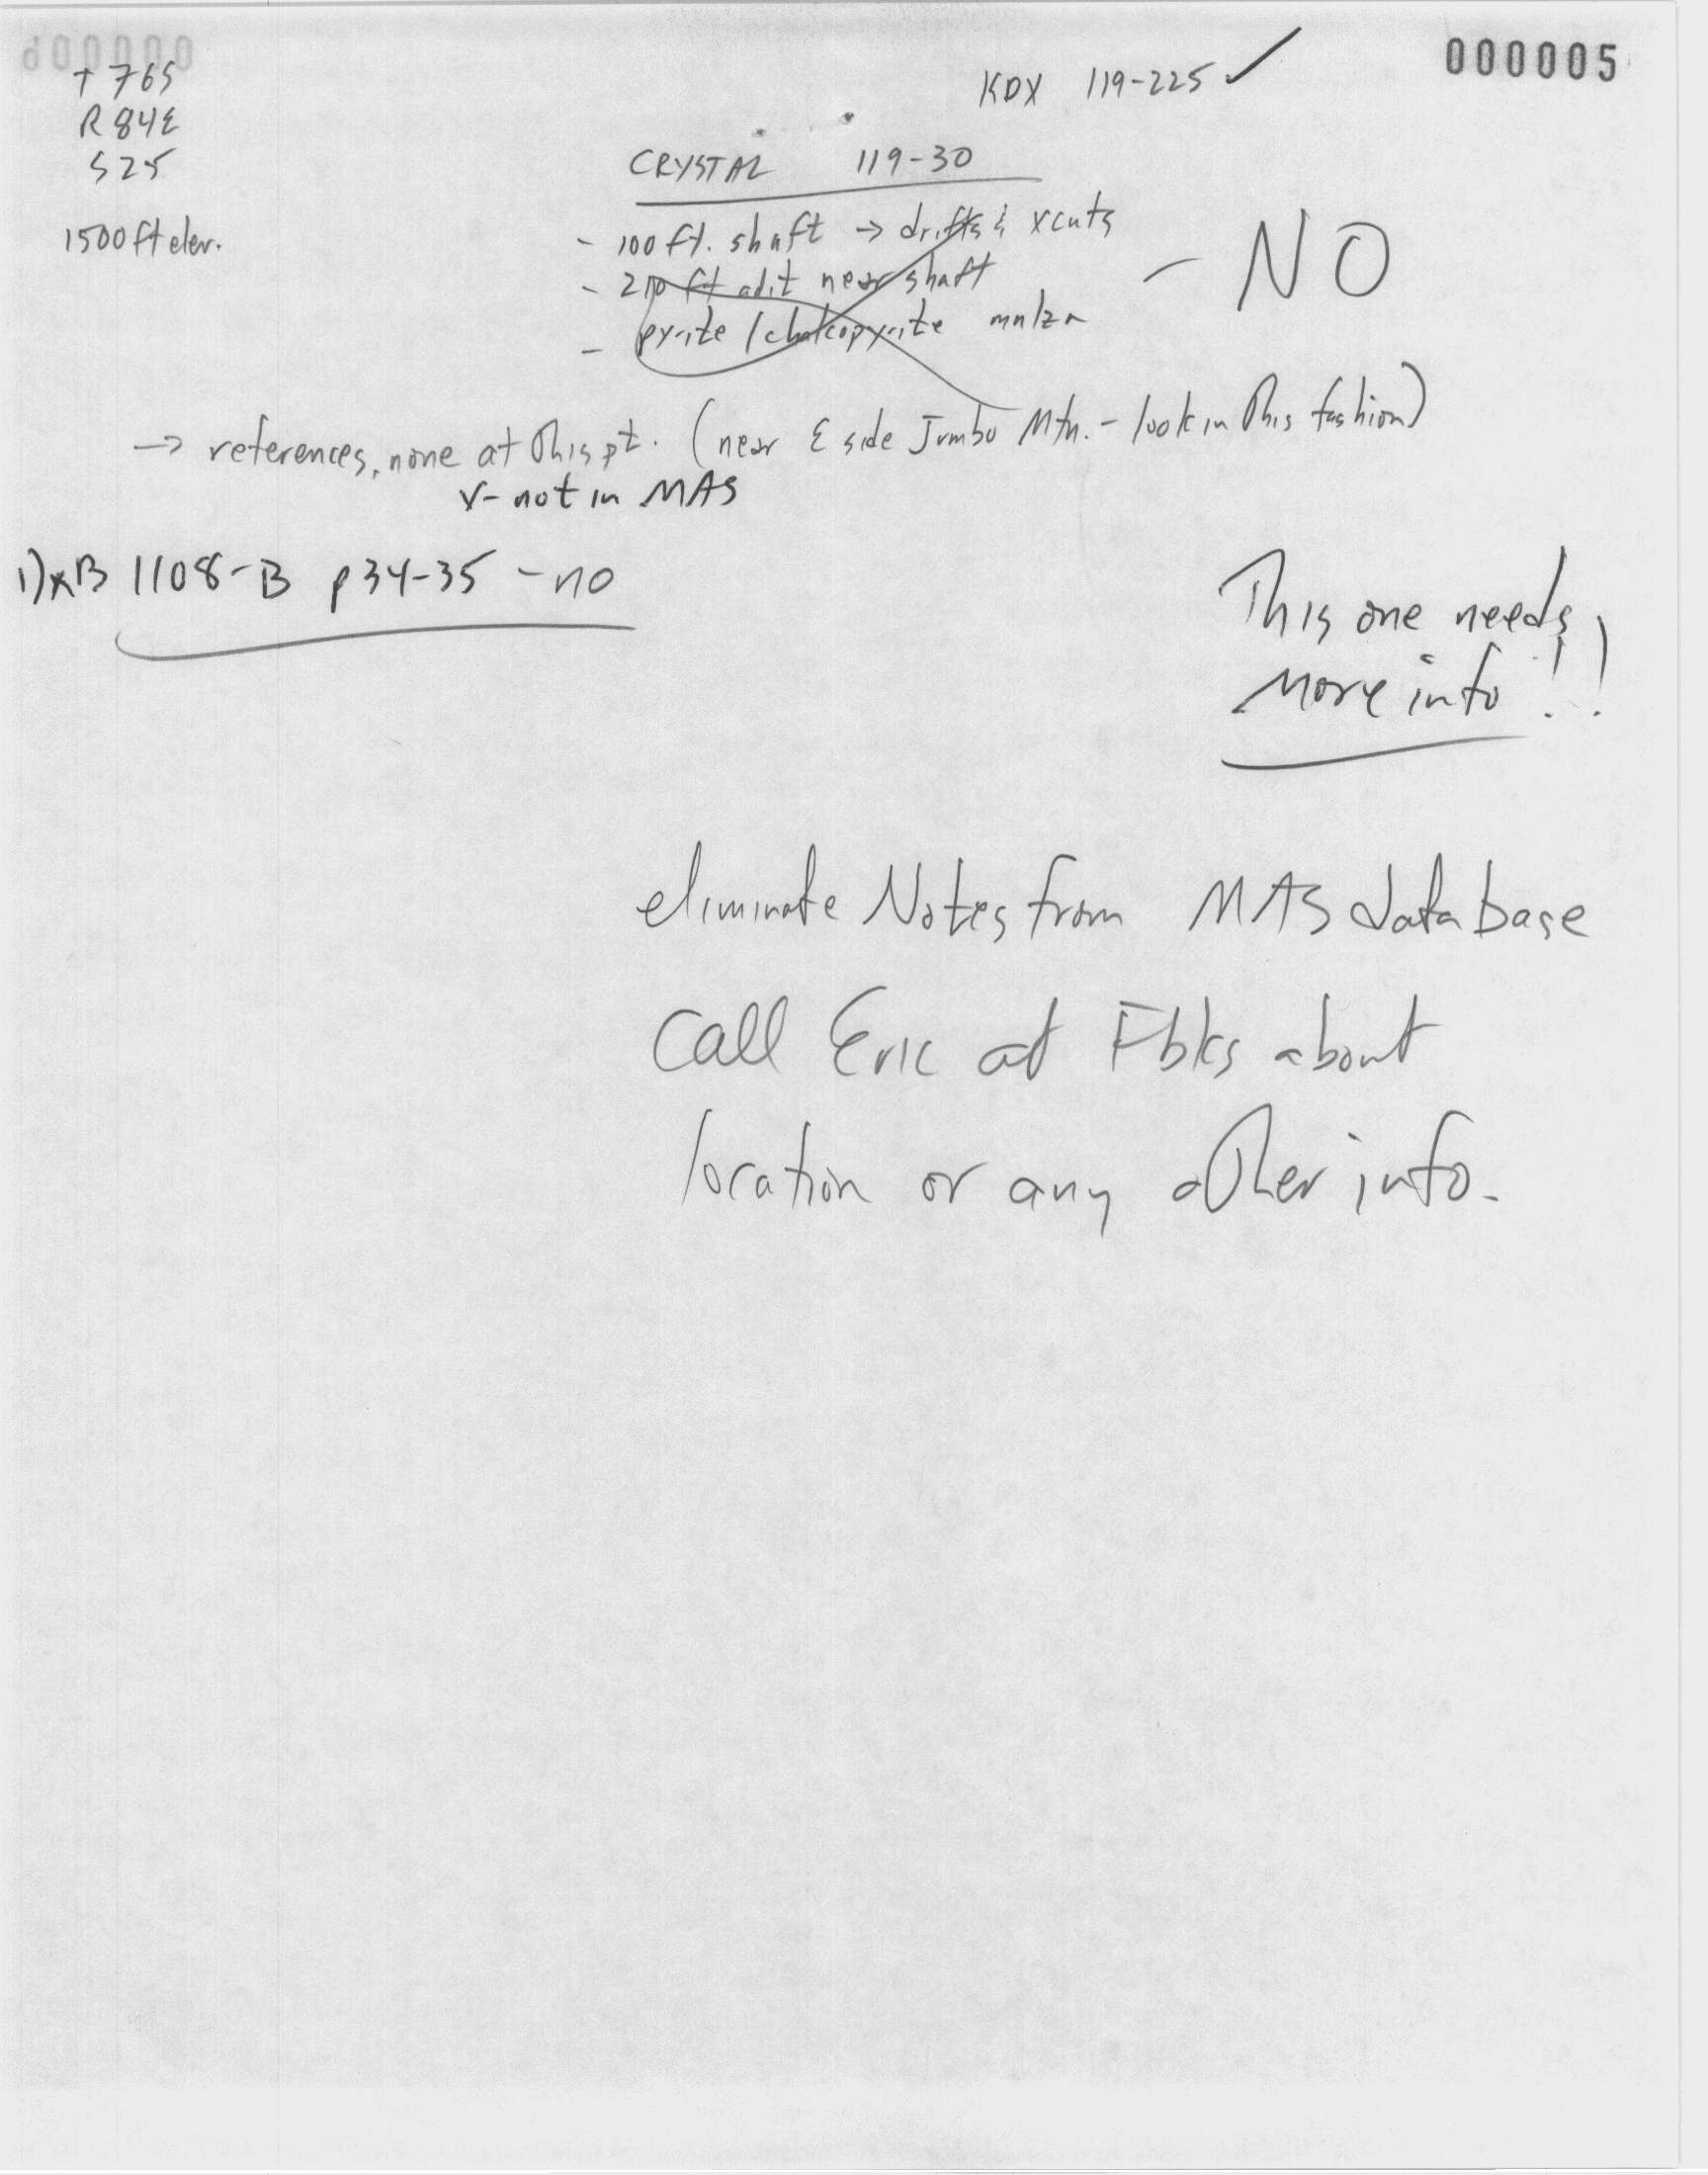 000005
T 76S
R 84E
S 25
1500 ft elev.
KDX 119-225 ✓
CRYSTAL 119-30
- 100 ft. shaft → drifts & xcuts
- 210 ft adit near shaft
- pyrite / chalcopyrite mnlzn
- NO
→ references, none at this pt. (near E side Jumbo Mtn. - look in this fashion)
- not in MAS
1) x B 1108-B p 34-35 - no
This one needs
more info!!
eliminate Notes from MAS database
Call Eric at Fbks about
location or any other info.